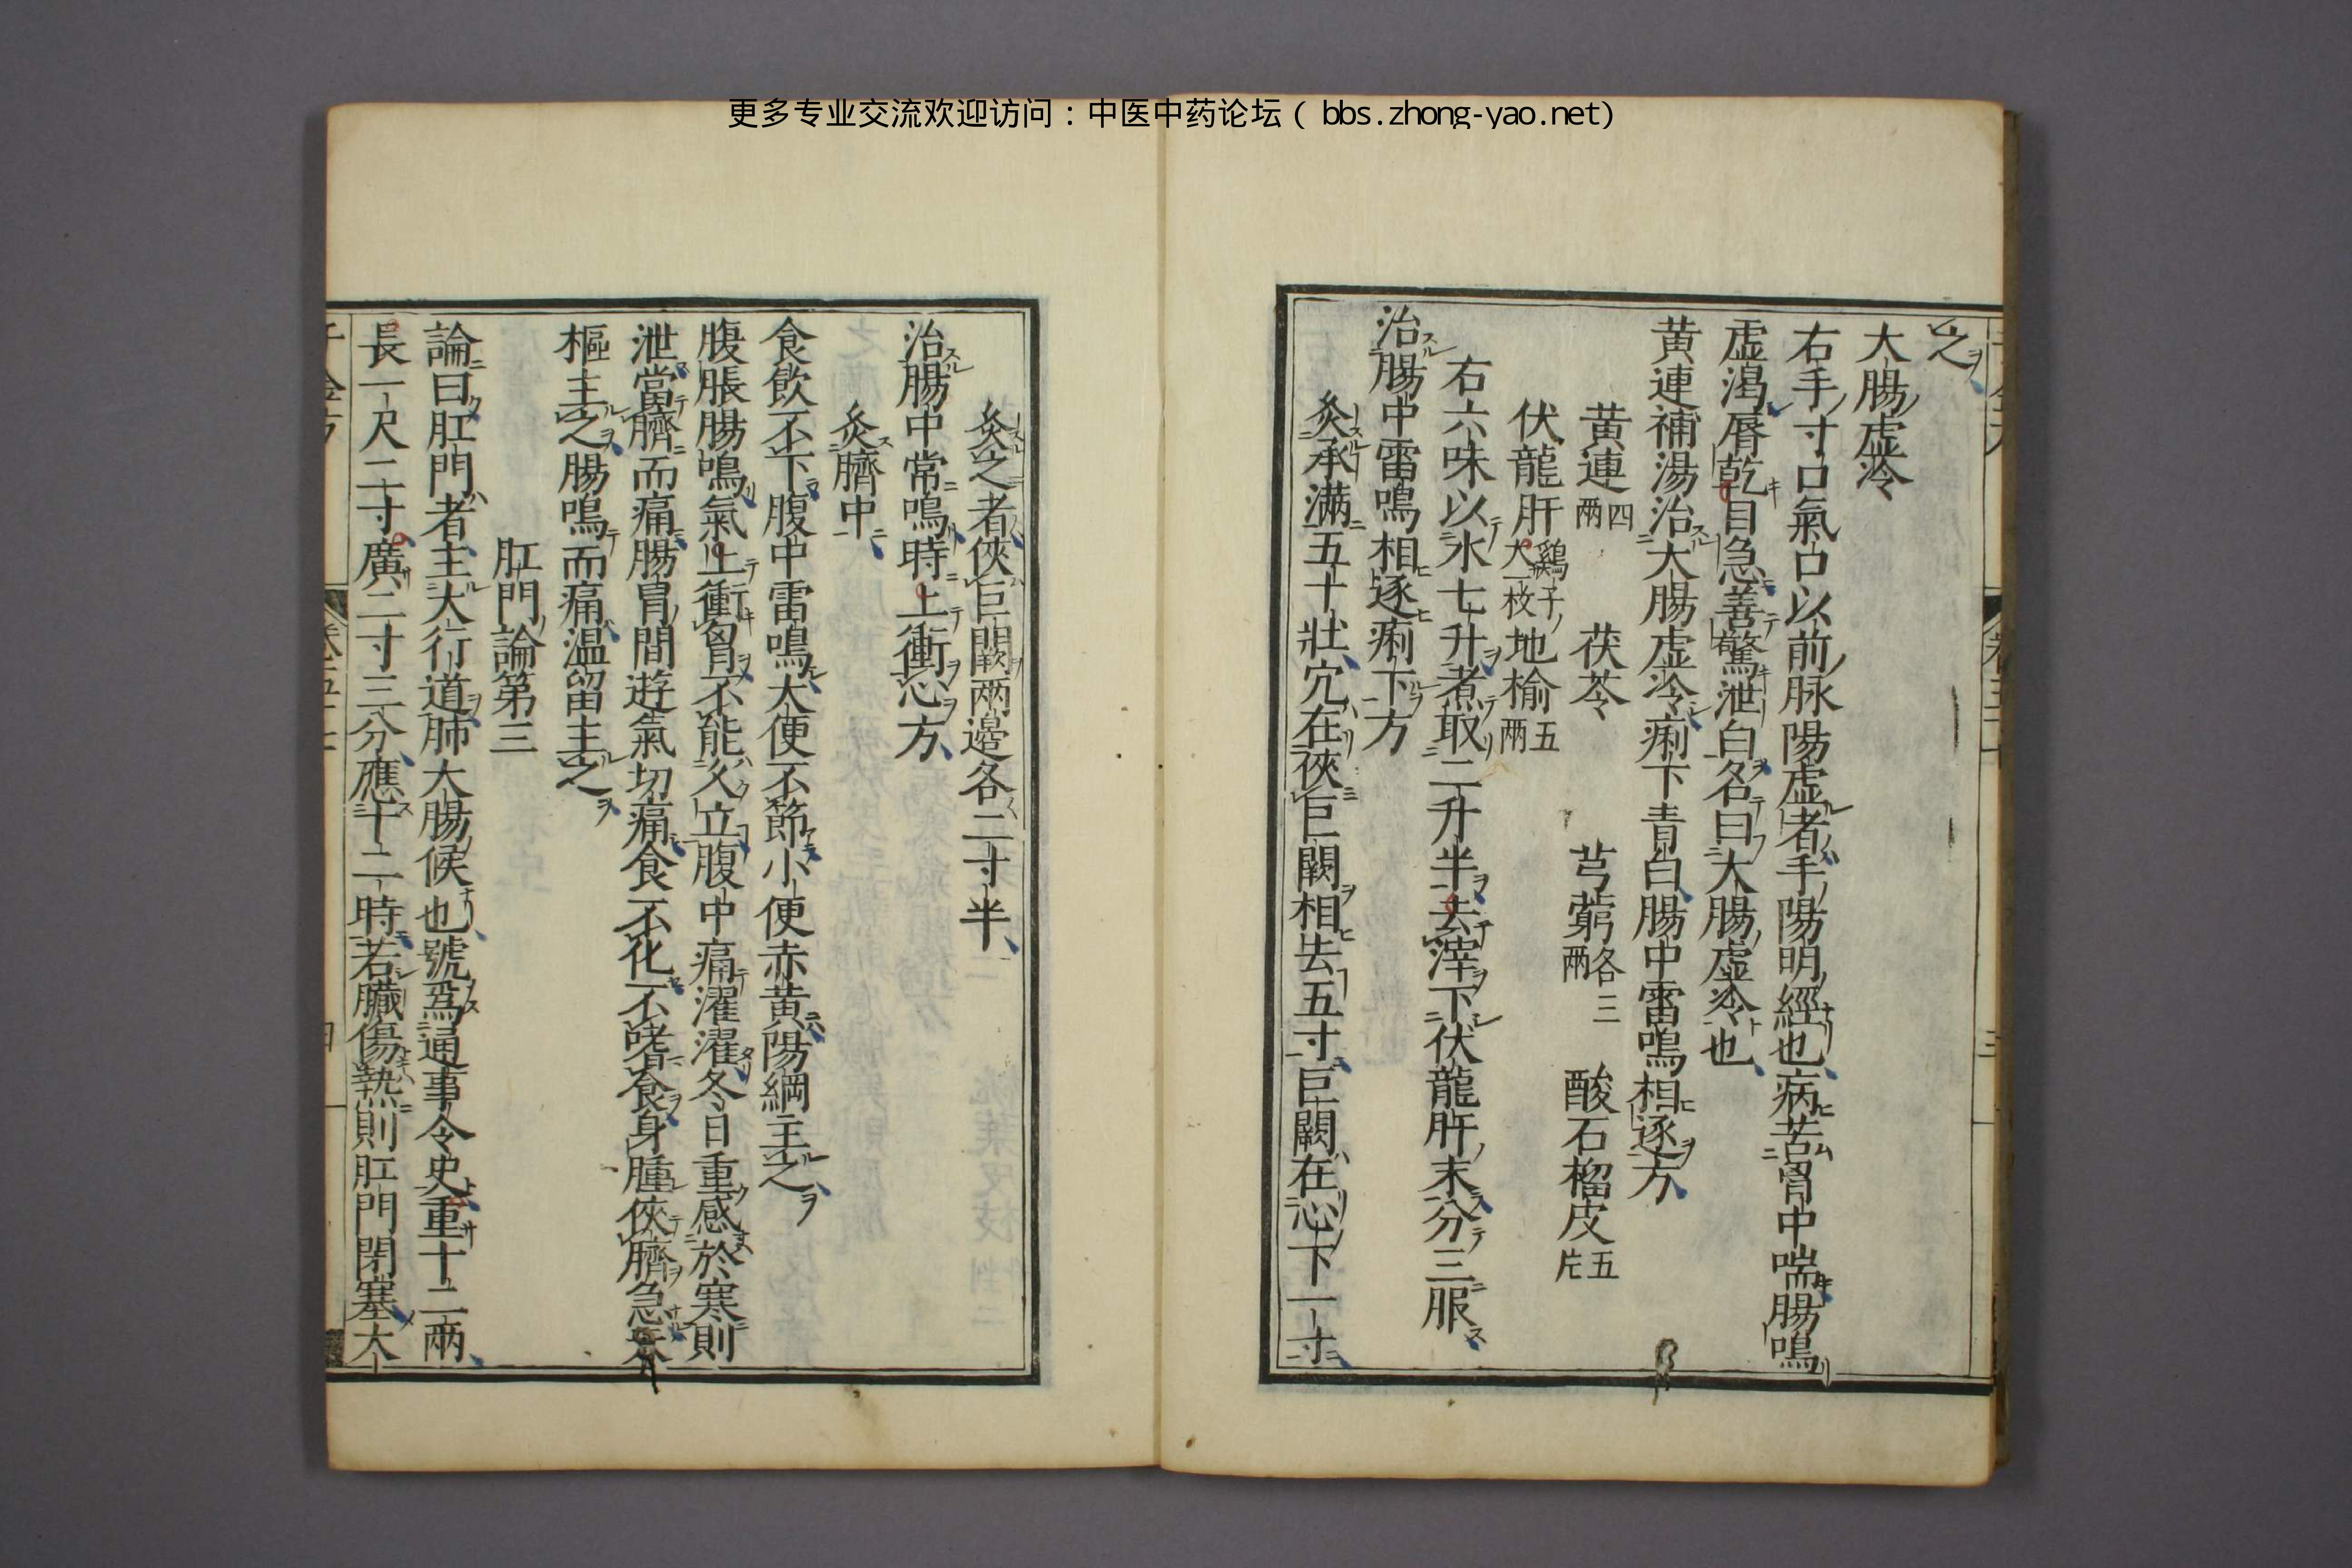 更多专业交流欢迎访问：中医中药论坛（bbs.zhong-yao.net）
之
大腸虛冷
右手寸口氣口以前脉陽虛者手陽明經也病苦胷中喘腸鳴
虛渴脣乾目急善驚泄白名曰大腸虛冷也
黄連補湯治大腸虛冷痢下青白腸中雷鳴相逐方
黄連四兩 茯苓 芎藭各三兩 酸石榴皮五片
伏龍肝鷄子大一枚 地榆五兩
右六味以水七升煮取二升半去滓下伏龍肝末分三服
治腸中雷鳴相逐痢下方
灸承滿五十壯穴在俠巨闕相去五寸巨闕在心下一寸
灸之者俠巨闕兩邊各二寸半
治腸中常鳴時上衝心方
灸臍中
食飲不下腹中雷鳴大便不節小便赤黄陽綱主之
腹脹腸鳴氣上衝胷不能久立腹中痛濯濯冬日重感於寒則
泄當臍而痛腸胃間遊氣切痛食不化不嗜食身腫俠臍急天
樞主之腸鳴而痛温留主之
肛門論第三
論曰肛門者主大行道肺大腸候也號爲通事令史重十二兩
長一尺二寸廣二寸三分應十二時若臟傷熱則肛門閉塞大